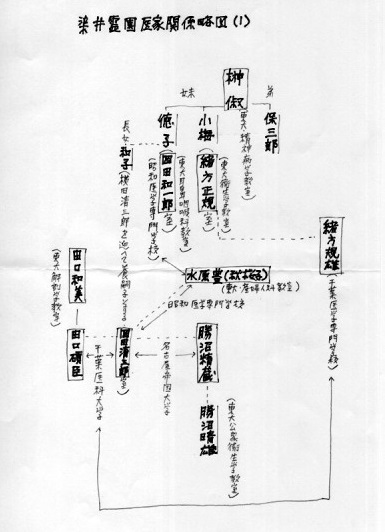 染井霊園医家関係略図(1)
榊俶
(東大精神病学教室)
弟
保三郎
妹
小梅
緒方正規
(東大衛生学教室)
億子
岡田和一郎
(東大耳鼻咽喉科教室)
(昭和医学専門学校)
長女
和子
(横田清三郎を迎へて養嗣子とする)
緒方規雄
(千葉医学専門学校)
田口和美
(東大解剖学教室)
水原豊(秋桜子)
(東大・産婦人科教室)
昭和医学専門学校
田口碩臣
岡田清三郎
勝沼精蔵
千葉医科大学
名古屋帝国大学
勝沼晴雄
(東大公衆衛生学教室)